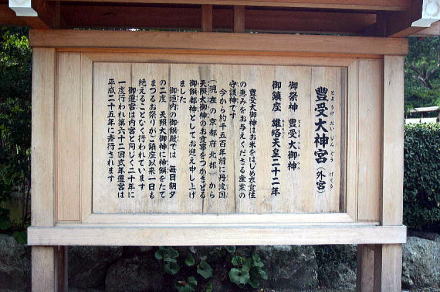 豊受大神宮（外宮）
とようけ だいじんぐう げくう
御祭神 豊受大御神
御鎮座 雄略天皇二十二年
豊受大御神はお米をはじめ衣食住
の恵みをお与えくださる産業の
守護神です
今から約千五百年前に丹波国
（現在の京都府北部）から
天照大御神のお食事をつかさどる
御饌都神としてお迎え申し上げ
ました
御垣内の御饌殿では 毎日朝夕
の二度 天照大御神に神饌をたて
まつるお祭りがご鎮座以来一日も
絶えることなく行われています
御遷宮は内宮と同じく二十年に
一度行われ第六十二回式年遷宮は
平成二十五年に斎行されます